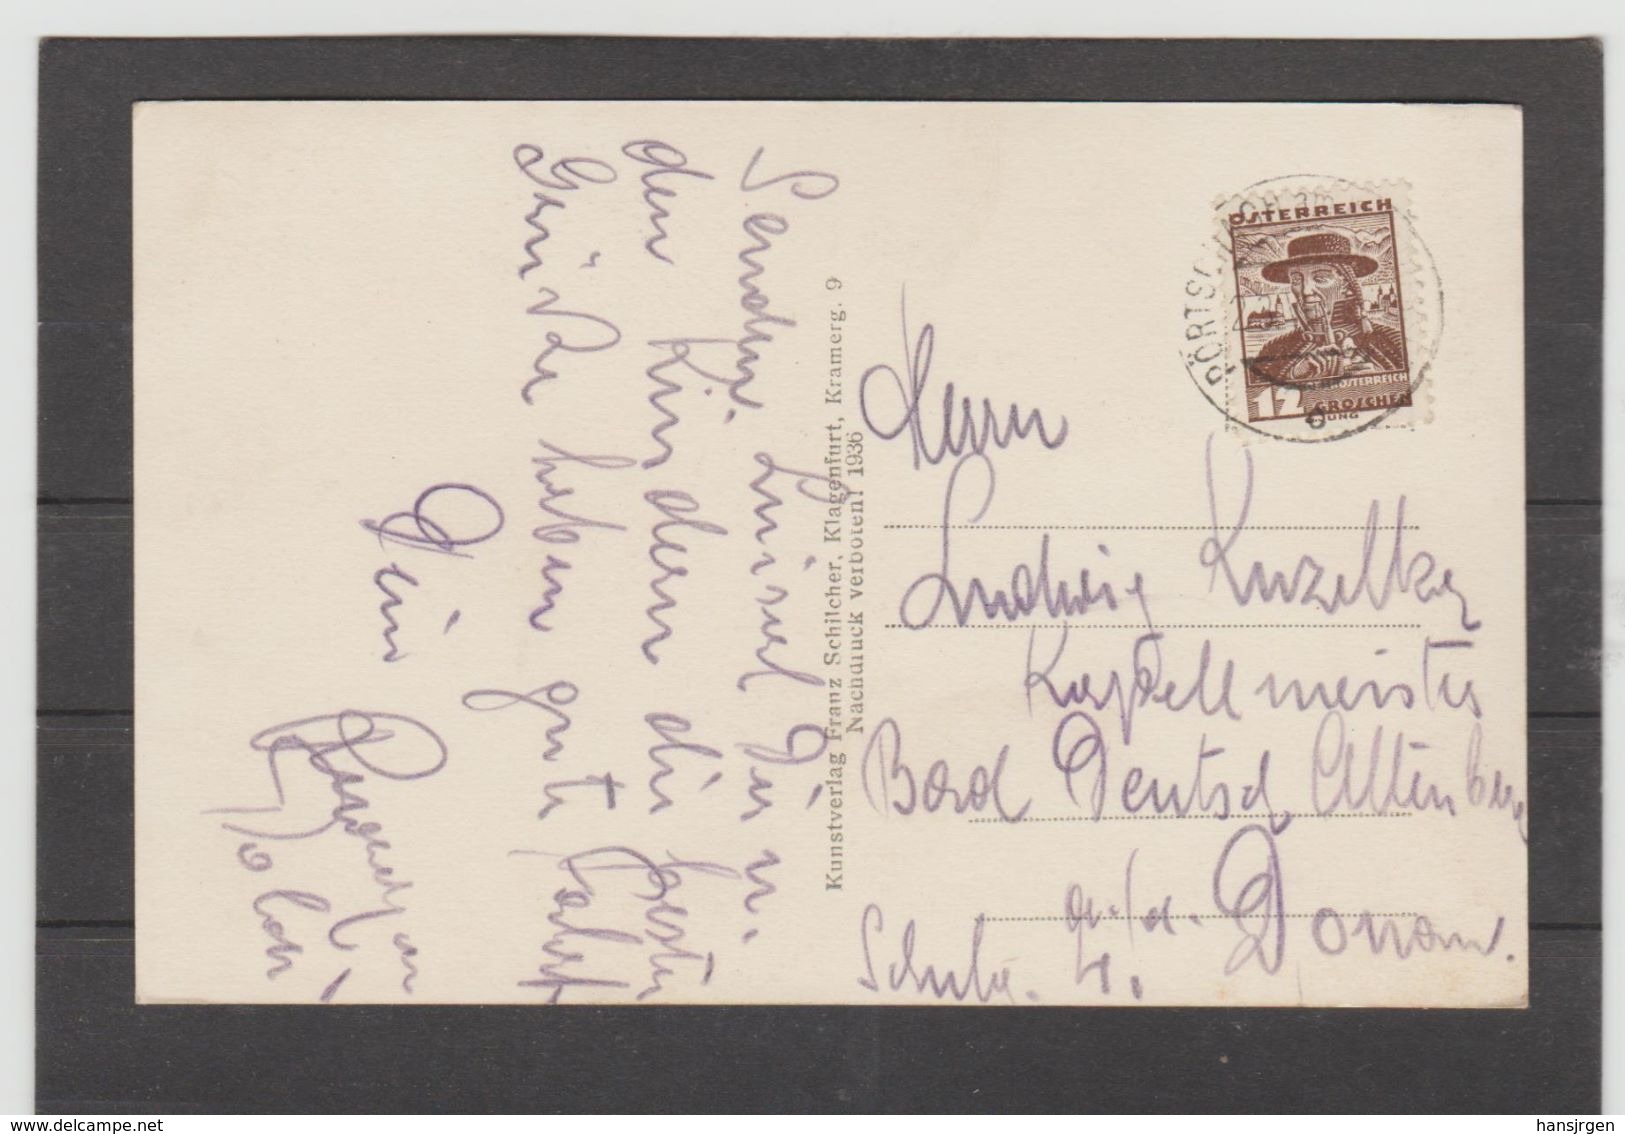 Senden. Luisal Dir u.
den Kindern die besten
Grüße haben gute Fahrt
Dein
Kunstverlag Franz Schilcher, Klagenfurt, Kramerg. 9
Nachdruck verboten! 1936
PÖRTSCHACH am
ÖSTERREICH
12 GROSCHEN
Herrn
Ludwig Kuzelka
Kapellmeister
Bad Deutsch Altenburg
a./d. Donau.
Schulg. 4.
delcampe.net
hansjrgen